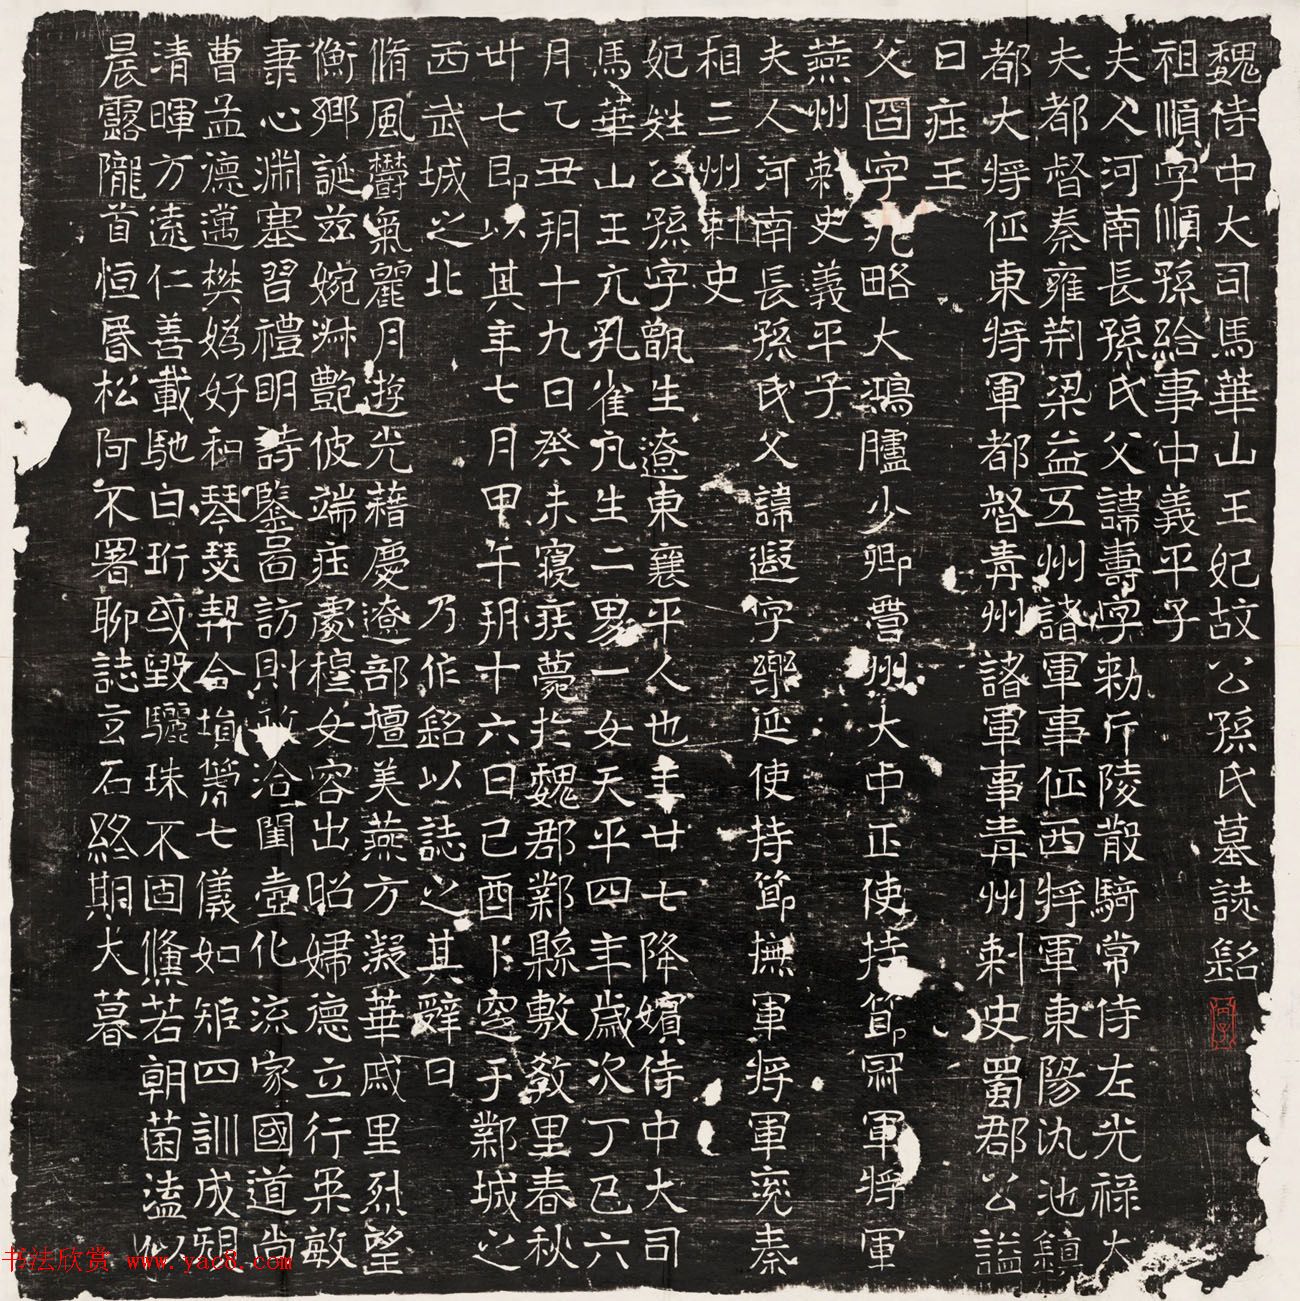 魏侍中大司馬華山王妃故公孫氏墓誌銘
祖順字順孫給事中義平子
夫人河南長孫氏父諱壽字勅斤陵散騎常侍左光祿大
夫都督秦雍荊梁益五州諸軍事征西將軍東陽仇池鎮
都大將征東將軍都督青州諸軍事青州刺史蜀郡公謚
曰莊王
父冏字九略大鴻臚少卿營州大中正使持節冠軍將軍
燕州刺史義平子
夫人河南長孫氏父諱遐字樂延使持節撫軍將軍兗秦
相三州刺史
妃姓公孫字甑生遼東襄平人也年廿七降嬪侍中大司
馬華山王亢孔雀凡生二男一女天平四年歲次丁巳六
月乙丑朔十九日癸未寢疾薨於魏郡鄴縣敷教里春秋
卅七即以其年七月甲午朔十六日己酉卜窆于鄴城之
西武城之北 乃作銘以誌之其辭曰
脩風鬱氣麗月遊光藉慶遼部擅美燕方凝華戚里烈望
衡鄉誕茲婉淋艷彼端莊處穆女容出昭婦德立行柔敏
秉心淵塞習禮明詩鑒啚訪則洽閨壼化流家國道尚
曹孟德邁樊媯好和琴瑟契合塤篪七儀如矩四訓成規
清暉方遠仁善載馳白珩或毀驪珠不固儵若朝菌溘似
晨露隴首恒昏松阿不署聊誌玄石終期大暮
书法欣赏 www.yac8.com